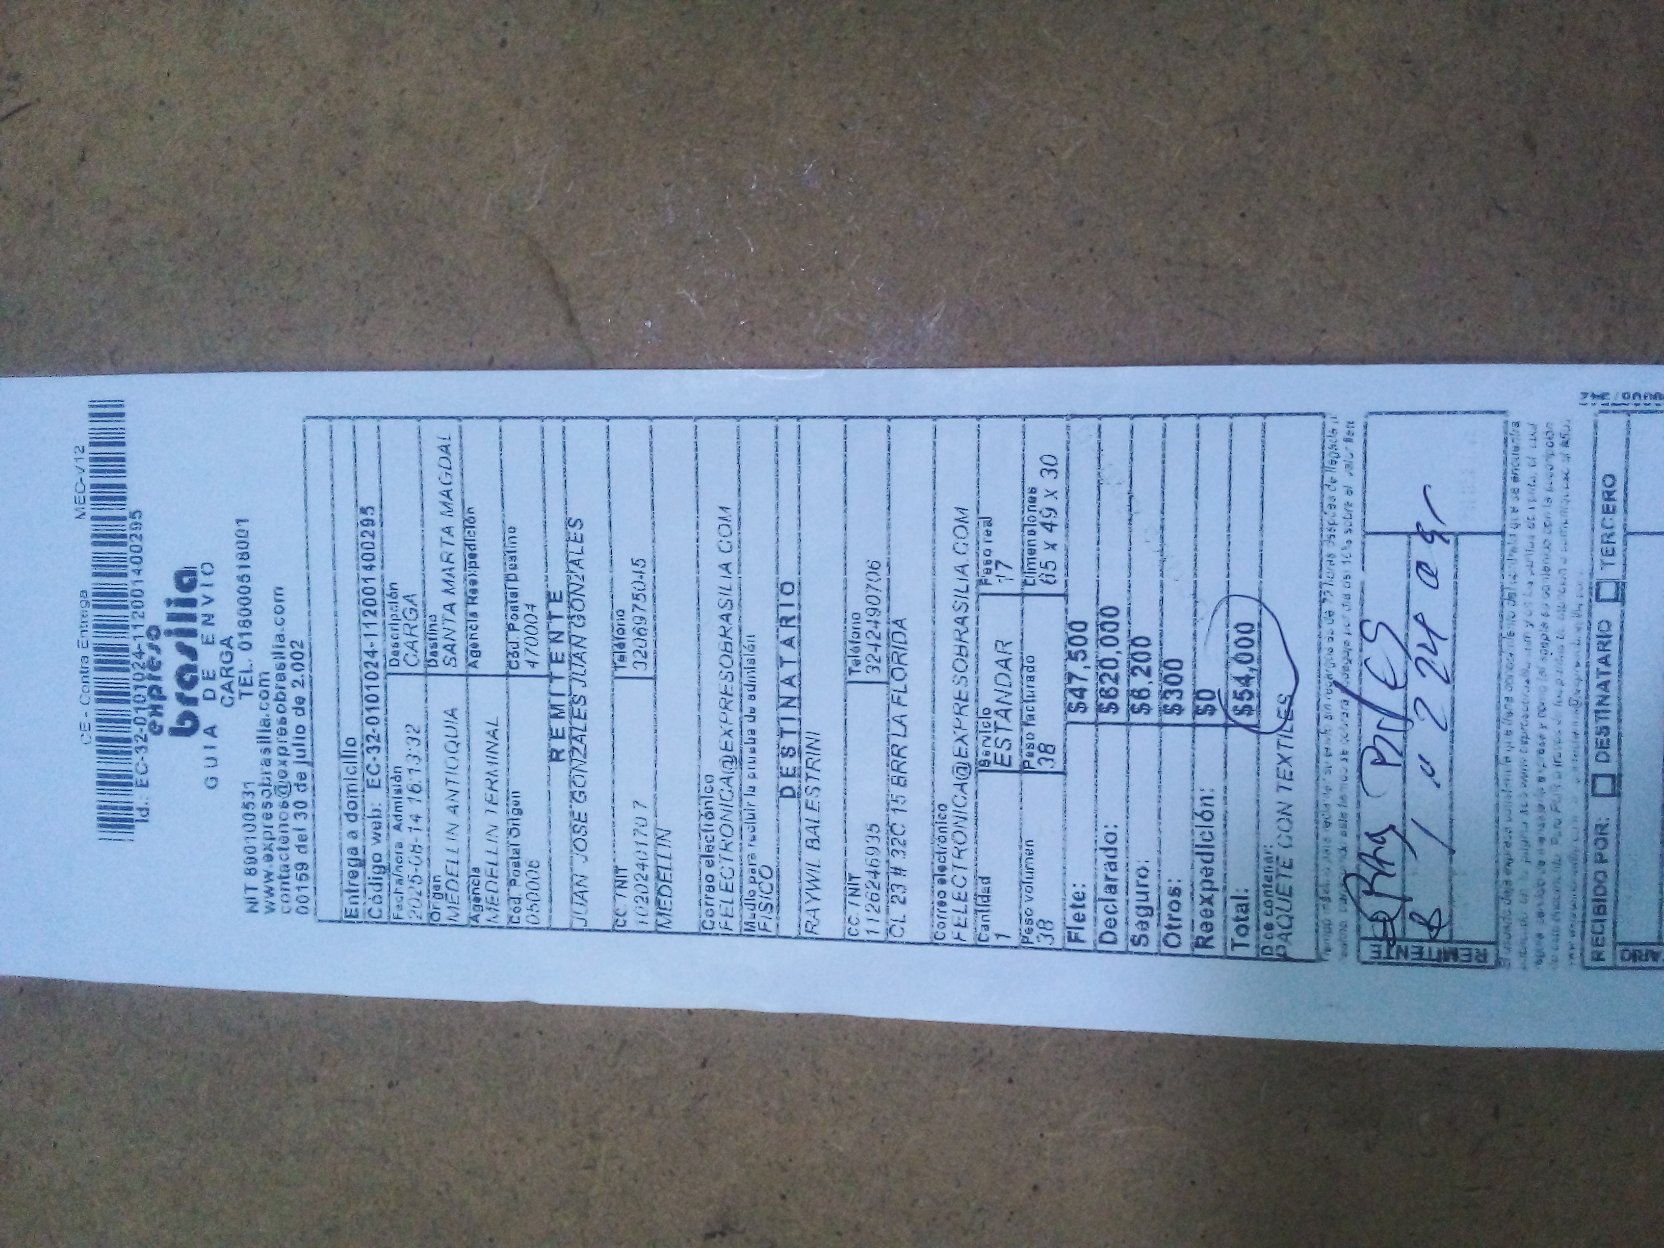 CE - Contra Entrega MEC-V12
Id.: EC-32-0101024-112001400295
expreso
brasilia
GUIA DE ENVIO
CARGA
NIT 890100531 TEL. 018000518001
www.expresobrasilia.com
contactenos@expresobrasilia.com
00159 del 30 de julio de 2.002
Entrega a domicilio
Código web: EC-32-0101024-112001400295
Fecha/hora Admisión Descripción
2025-08-14 16:13:32 CARGA
Origen Destino
MEDELLIN ANTIOQUIA SANTA MARTA MAGDAL
Agencia Agencia Reexpedición
MEDELLIN TERMINAL
Cód Postal Origen Cód Postal Destino
470004
REMITENTE
JUAN JOSE GONZALES JUAN GONZALES
CC / NIT Teléfono
1020240170 7 3206975045
MEDELLIN
Correo electrónico
FELECTRONICA@EXPRESOBRASILIA.COM
Medio para recibir la prueba de admisión
FISICO
DESTINATARIO
RAYWIL BALESTRINI
CC / NIT Teléfono
1126246935 3242490706
CL 23 # 32C 15 BRR LA FLORIDA
Correo electrónico
FELECTRONICA@EXPRESOBRASILIA.COM
Cantidad Servicio Peso real
1 ESTANDAR 17
Peso volumen Peso facturado Dimensiones
38 38 65 x 49 x 30
Flete: $47,500
Declarado: $620,000
Seguro: $6,200
Otros: $300
Reexpedición: $0
Total: $54,000
Dice contener:
PAQUETE CON TEXTILES
REMITENTE
RECIBIDO POR: DESTINATARIO TERCERO